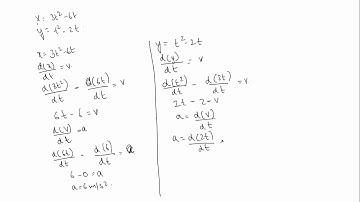 x = 3t² - 6t
y = t² - 2t
x = 3t² - 6t
d(x)/dt = v
d(3t²)/dt - d(6t)/dt = v
6t - 6 = v
d(v)/dt = a
d(6t)/dt - d(6)/dt = a
6 - 0 = a
a = 6 m/s²
y = t² - 2t
d(y)/dt = v
d(t²)/dt - d(2t)/dt = v
2t - 2 = v
a = d(v)/dt
a = d(2t)/dt